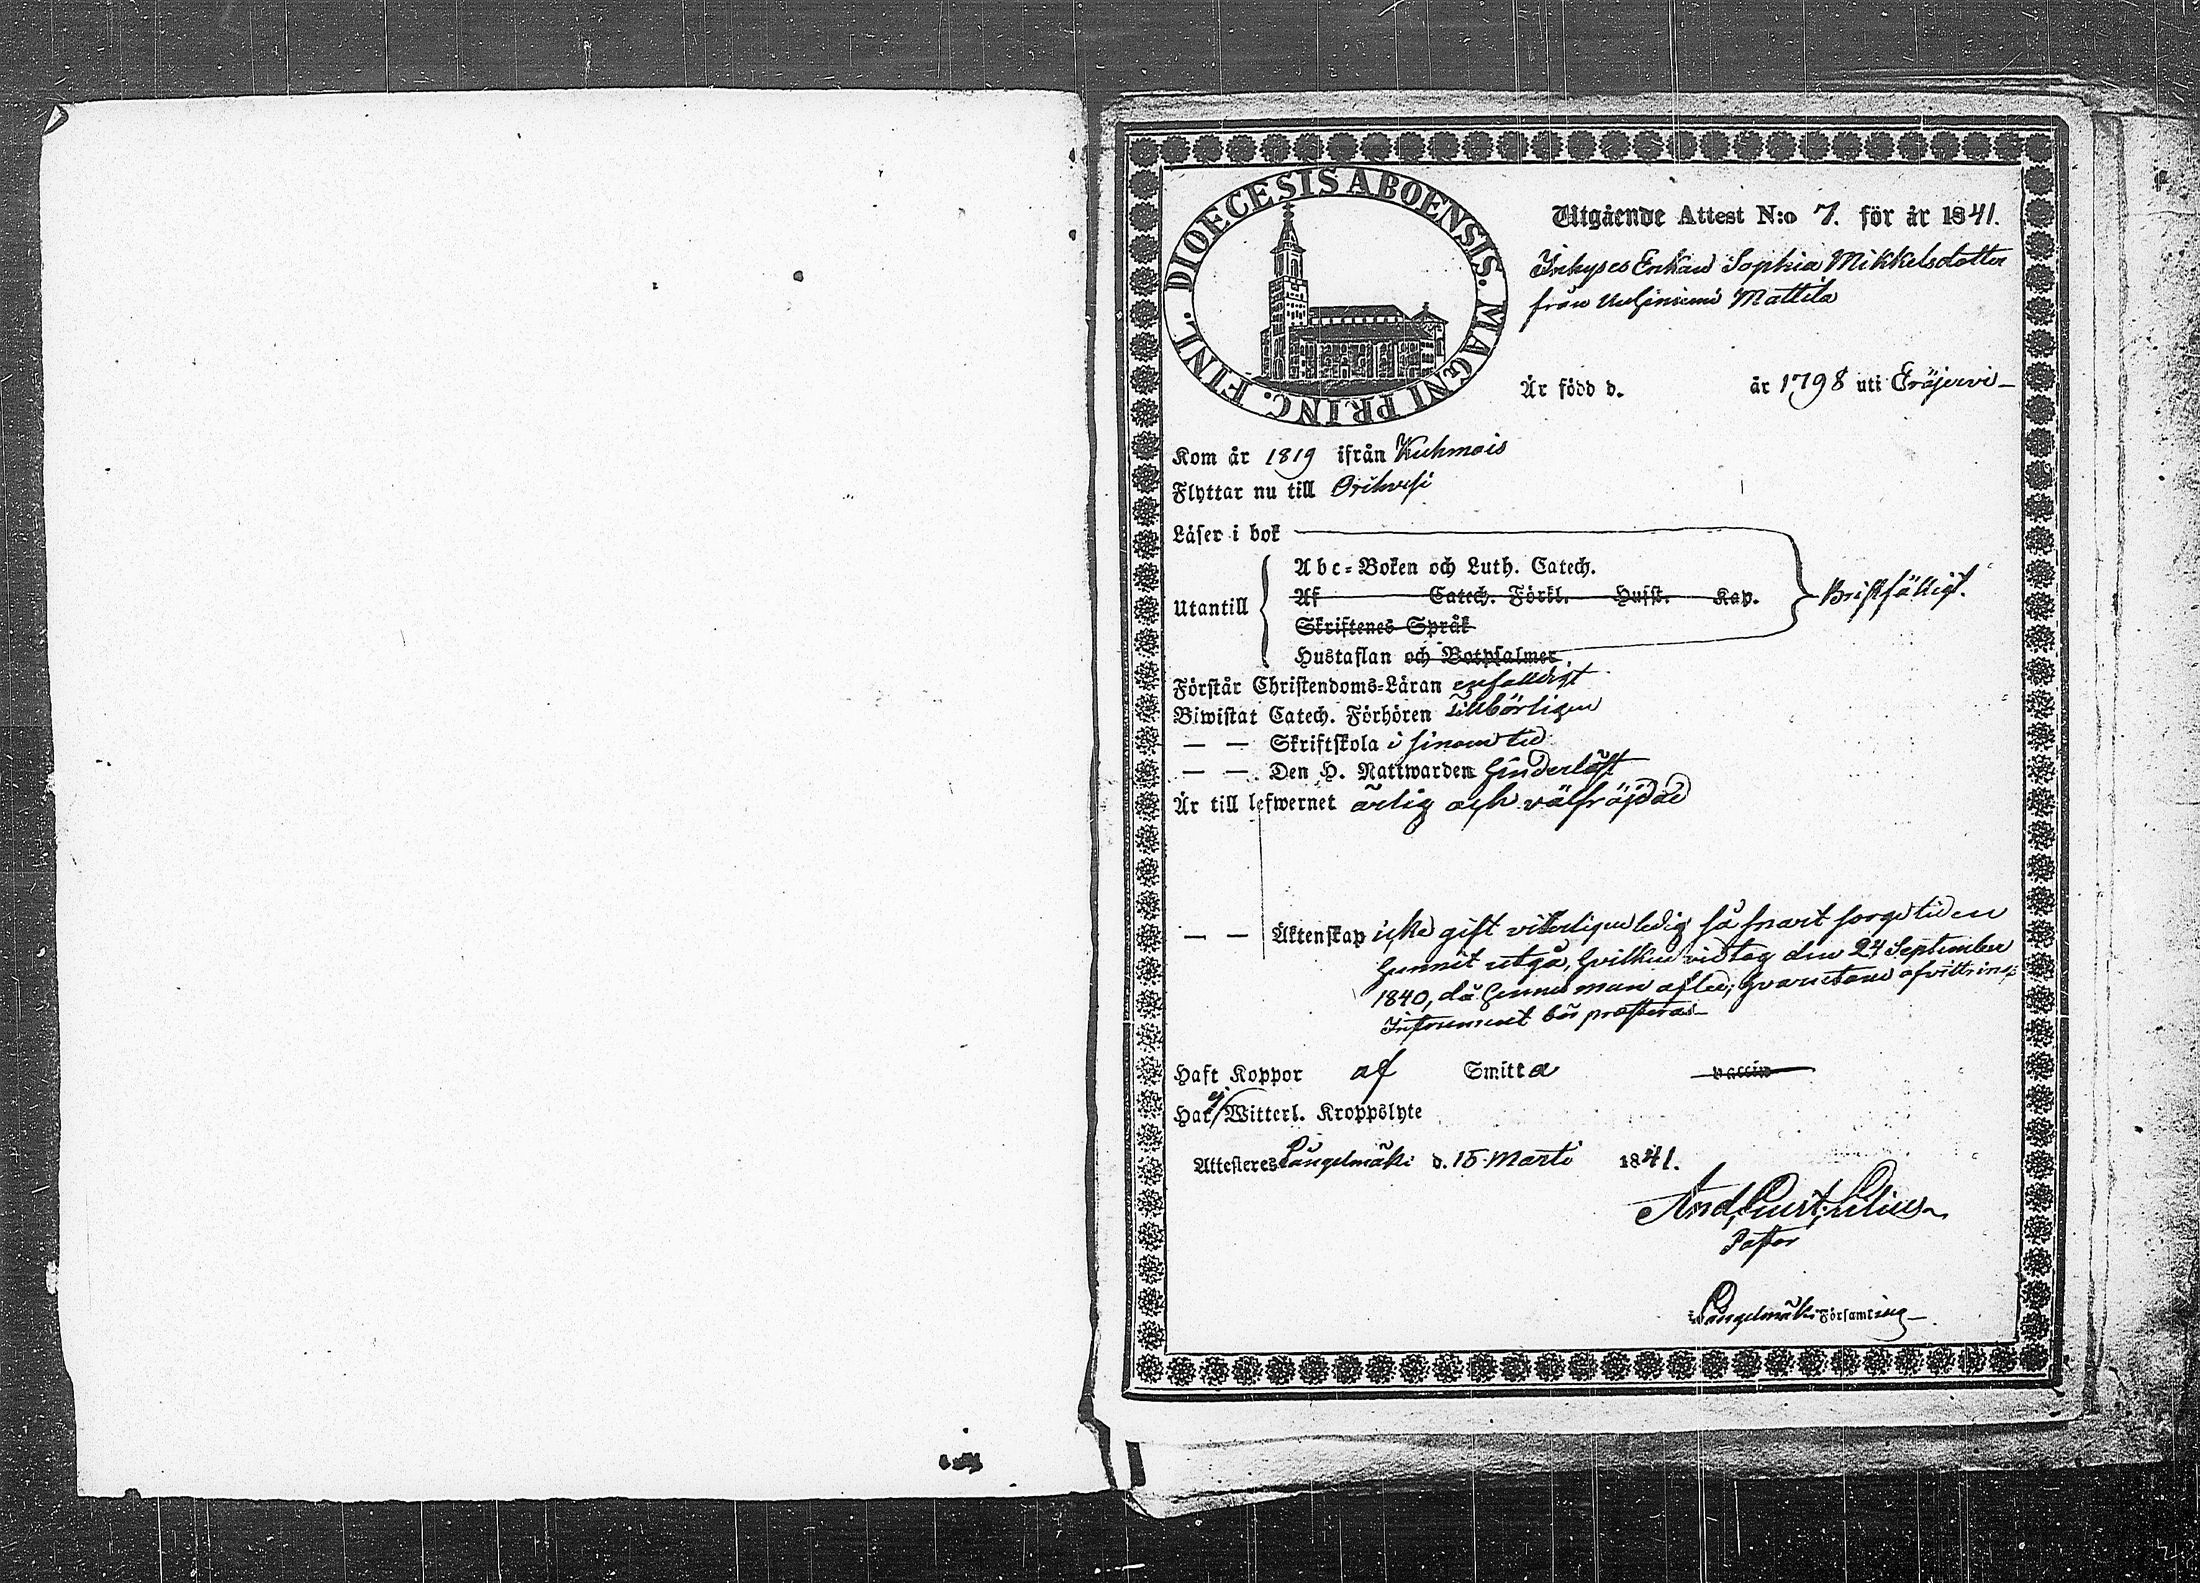 DIOECESIS ABOENSIS. MAGNI PRINC. FINL.
Utgående Attest N:o 7. för år 1841.
Inhyses Enkan Sophia Mikkelsdotter
från Mattila
Är född d. år 1798 uti Eräjervi
Kom år 1819 ifrån Kuhmois
Flyttar nu till Orihvesi
Läser i bok
Abc-Boken och Luth. Catech.
Af Catech. Förkl. Husst. Kap.
Utantill Bristfälligt.
Skriftenes Språk
Hustaflan och Botpsalmer
Förstår Christendoms-Läran enfaldigt
Biwistat Catech. Förhören tillbörligen
— — Skriftskola i sinom tid
— — Den H. Nattwarden hinderlöst
Är till lefwernet ärlig och välfräjdad
— — Äktenskap icke gift vitterligen ledig så snart sorgetiden
hunnit utgå, hvilken vidtog den 24 September
1840, då hennes man afled; hvarutom afvittrings
Instrument bör præsteras
Haft Koppor af Smitta vaccin
Har ej Witterl. Kroppslyte
Attesteres Längelmäki d. 15 Marti 1841.
And. Gust. Lilius
Pastor
i Längelmäki Församling